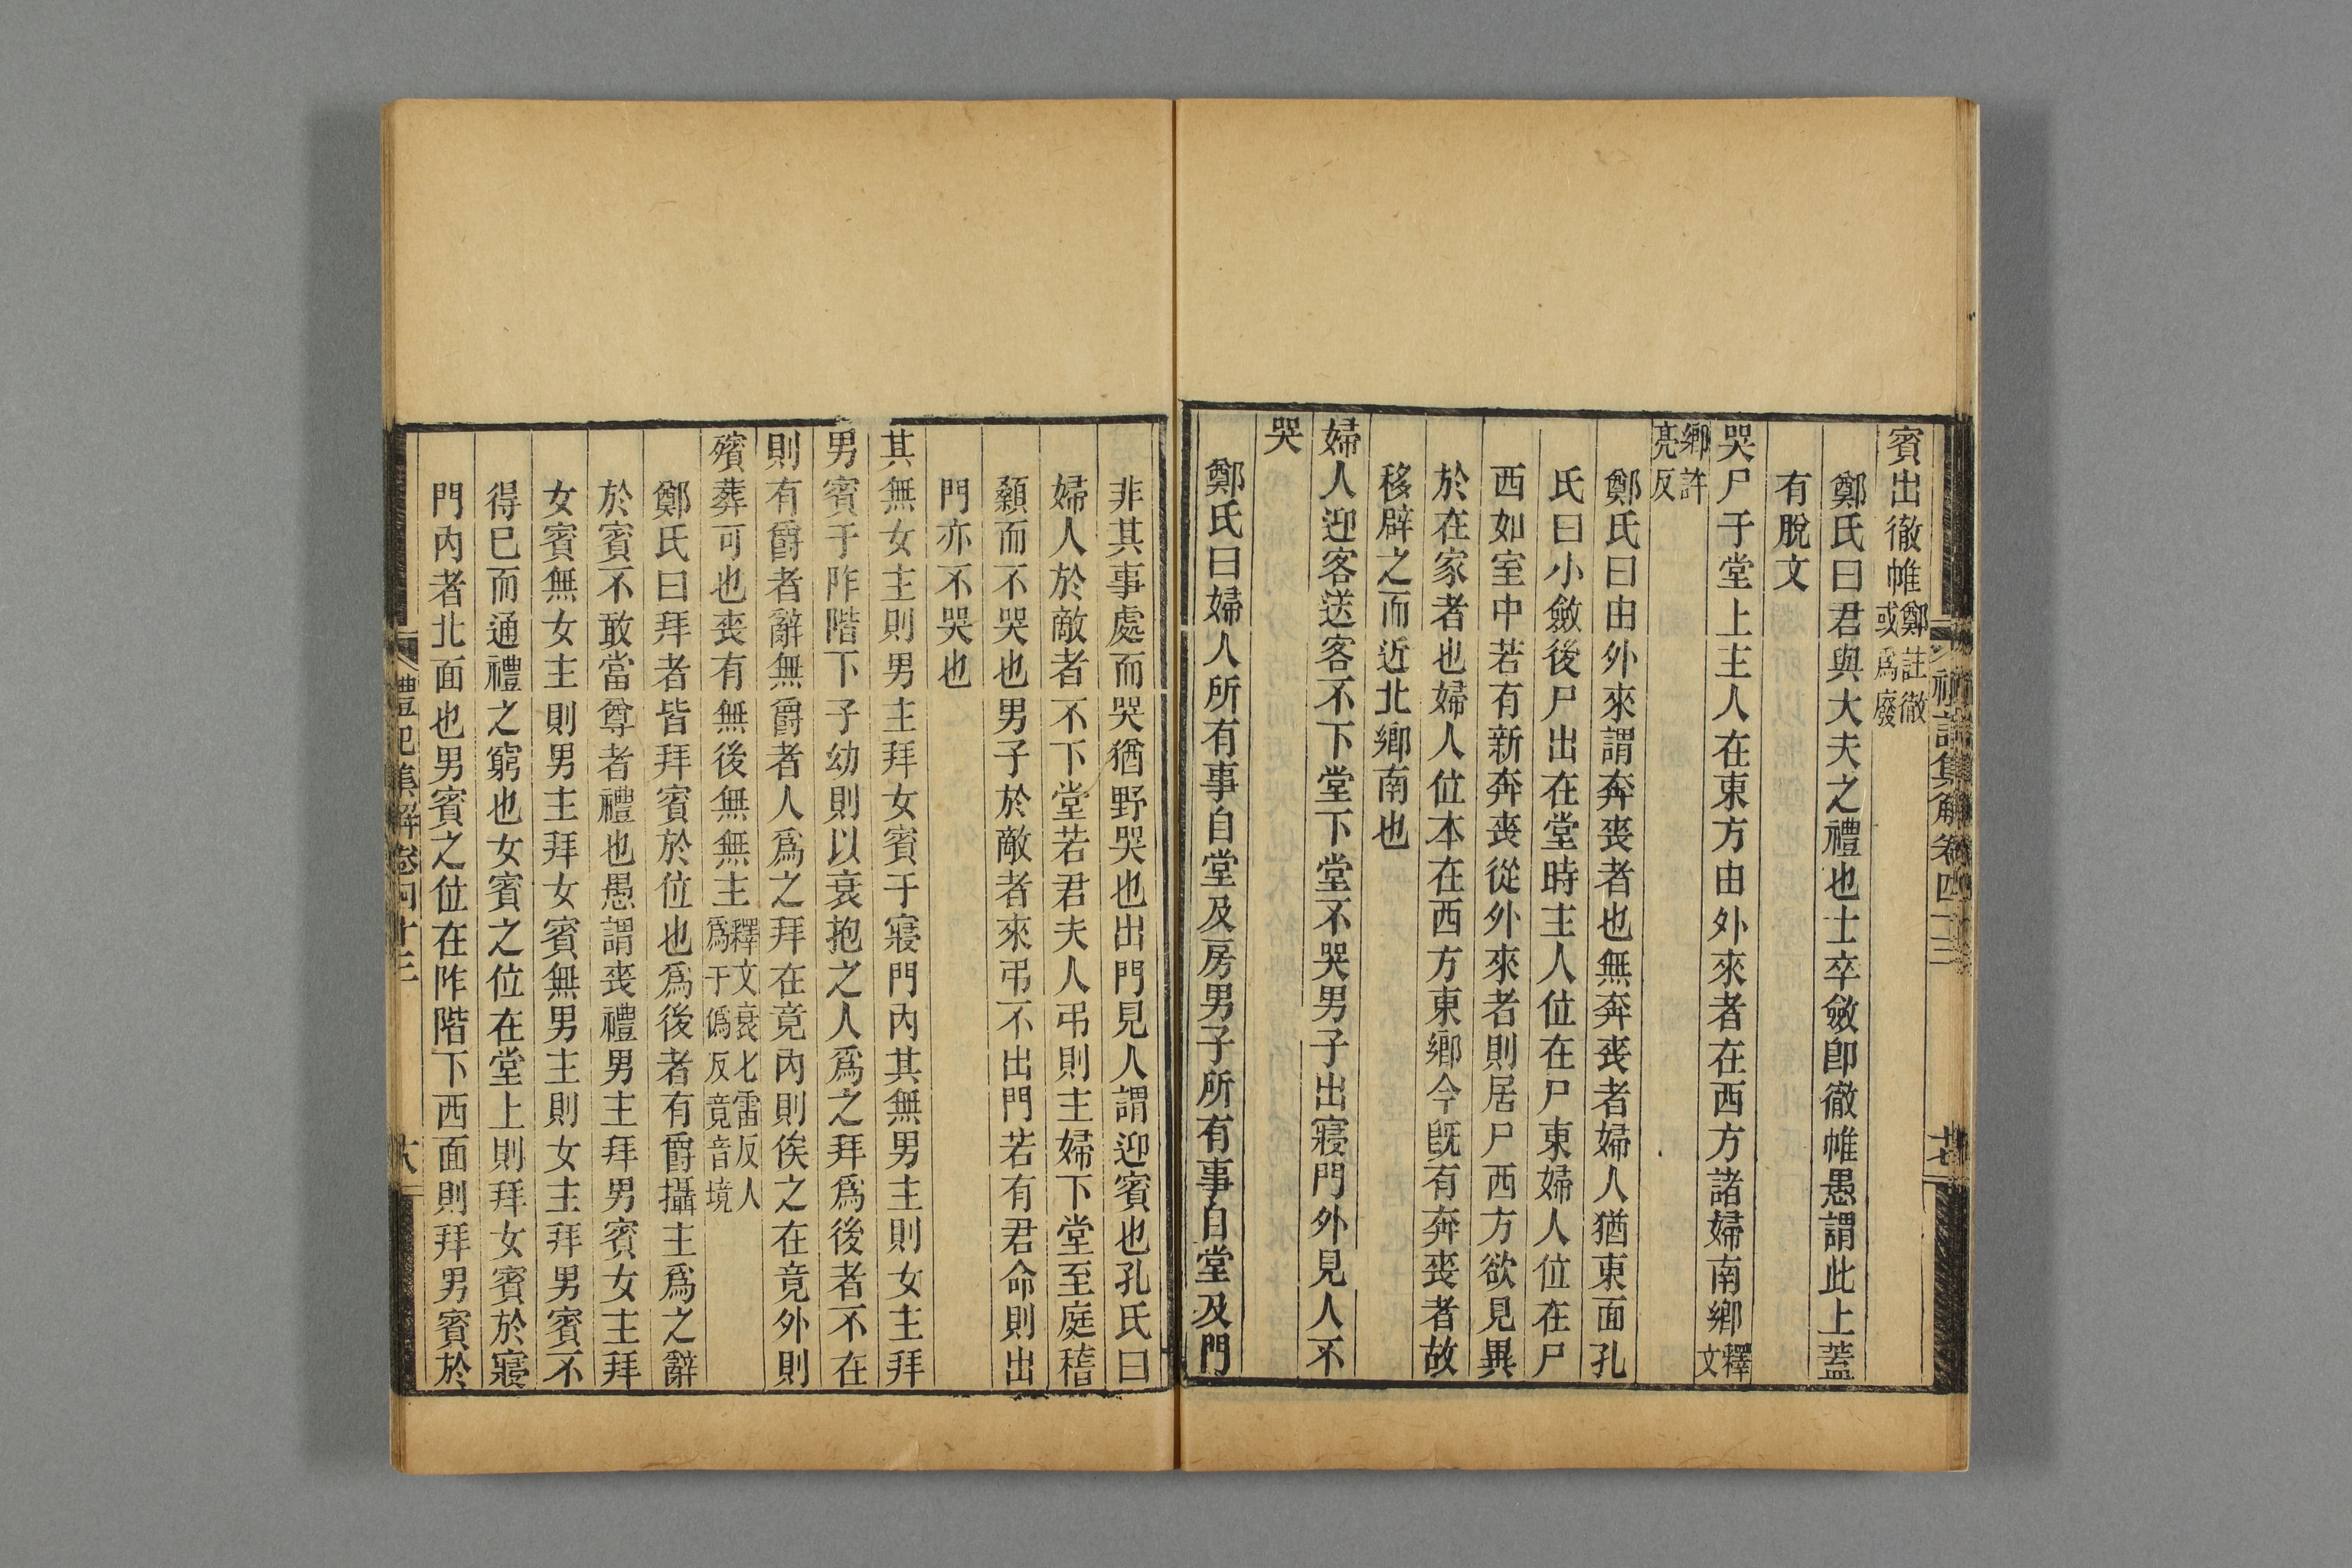 賓出徹帷鄭註徹或爲廢
鄭氏曰君與大夫之禮也士卒斂卽徹帷愚謂此上蓋
有脫文
哭尸于堂上主人在東方由外來者在西方諸婦南鄉釋文
鄉許亮反
鄭氏曰由外來謂奔喪者也無奔喪者婦人猶東面孔
氏曰小斂後尸出在堂時主人位在尸東婦人位在尸
西如室中若有新奔喪從外來者則居尸西方欲見異
於在家者也婦人位本在西方東鄉今旣有奔喪者故
移辟之而近北鄉南也
婦人迎客送客不下堂下堂不哭男子出寢門外見人不
哭
鄭氏曰婦人所有事自堂及房男子所有事自堂及門
非其事處而哭猶野哭也出門見人謂迎賓也孔氏曰
婦人於敵者不下堂若君夫人弔則主婦下堂至庭稽
顙而不哭也男子於敵者來弔不出門若有君命則出
門亦不哭也
其無女主則男主拜女賓于寢門內其無男主則女主拜
男賓于阼階下子幼則以衰抱之人爲之拜爲後者不在
則有爵者辭無爵者人爲之拜在竟內則俟之在竟外則
殯葬可也喪有無後無無主釋文衰七雷反人爲于僞反竟音境
鄭氏曰拜者皆拜賓於位也爲後者有爵攝主爲之辭
於賓不敢當尊者禮也愚謂喪禮男主拜男賓女主拜
女賓無女主則男主拜女賓無男主則女主拜男賓不
得已而通禮之窮也女賓之位在堂上則拜女賓於寢
門內者北面也男賓之位在阼階下西面則拜男賓於
禮記集解卷四十三